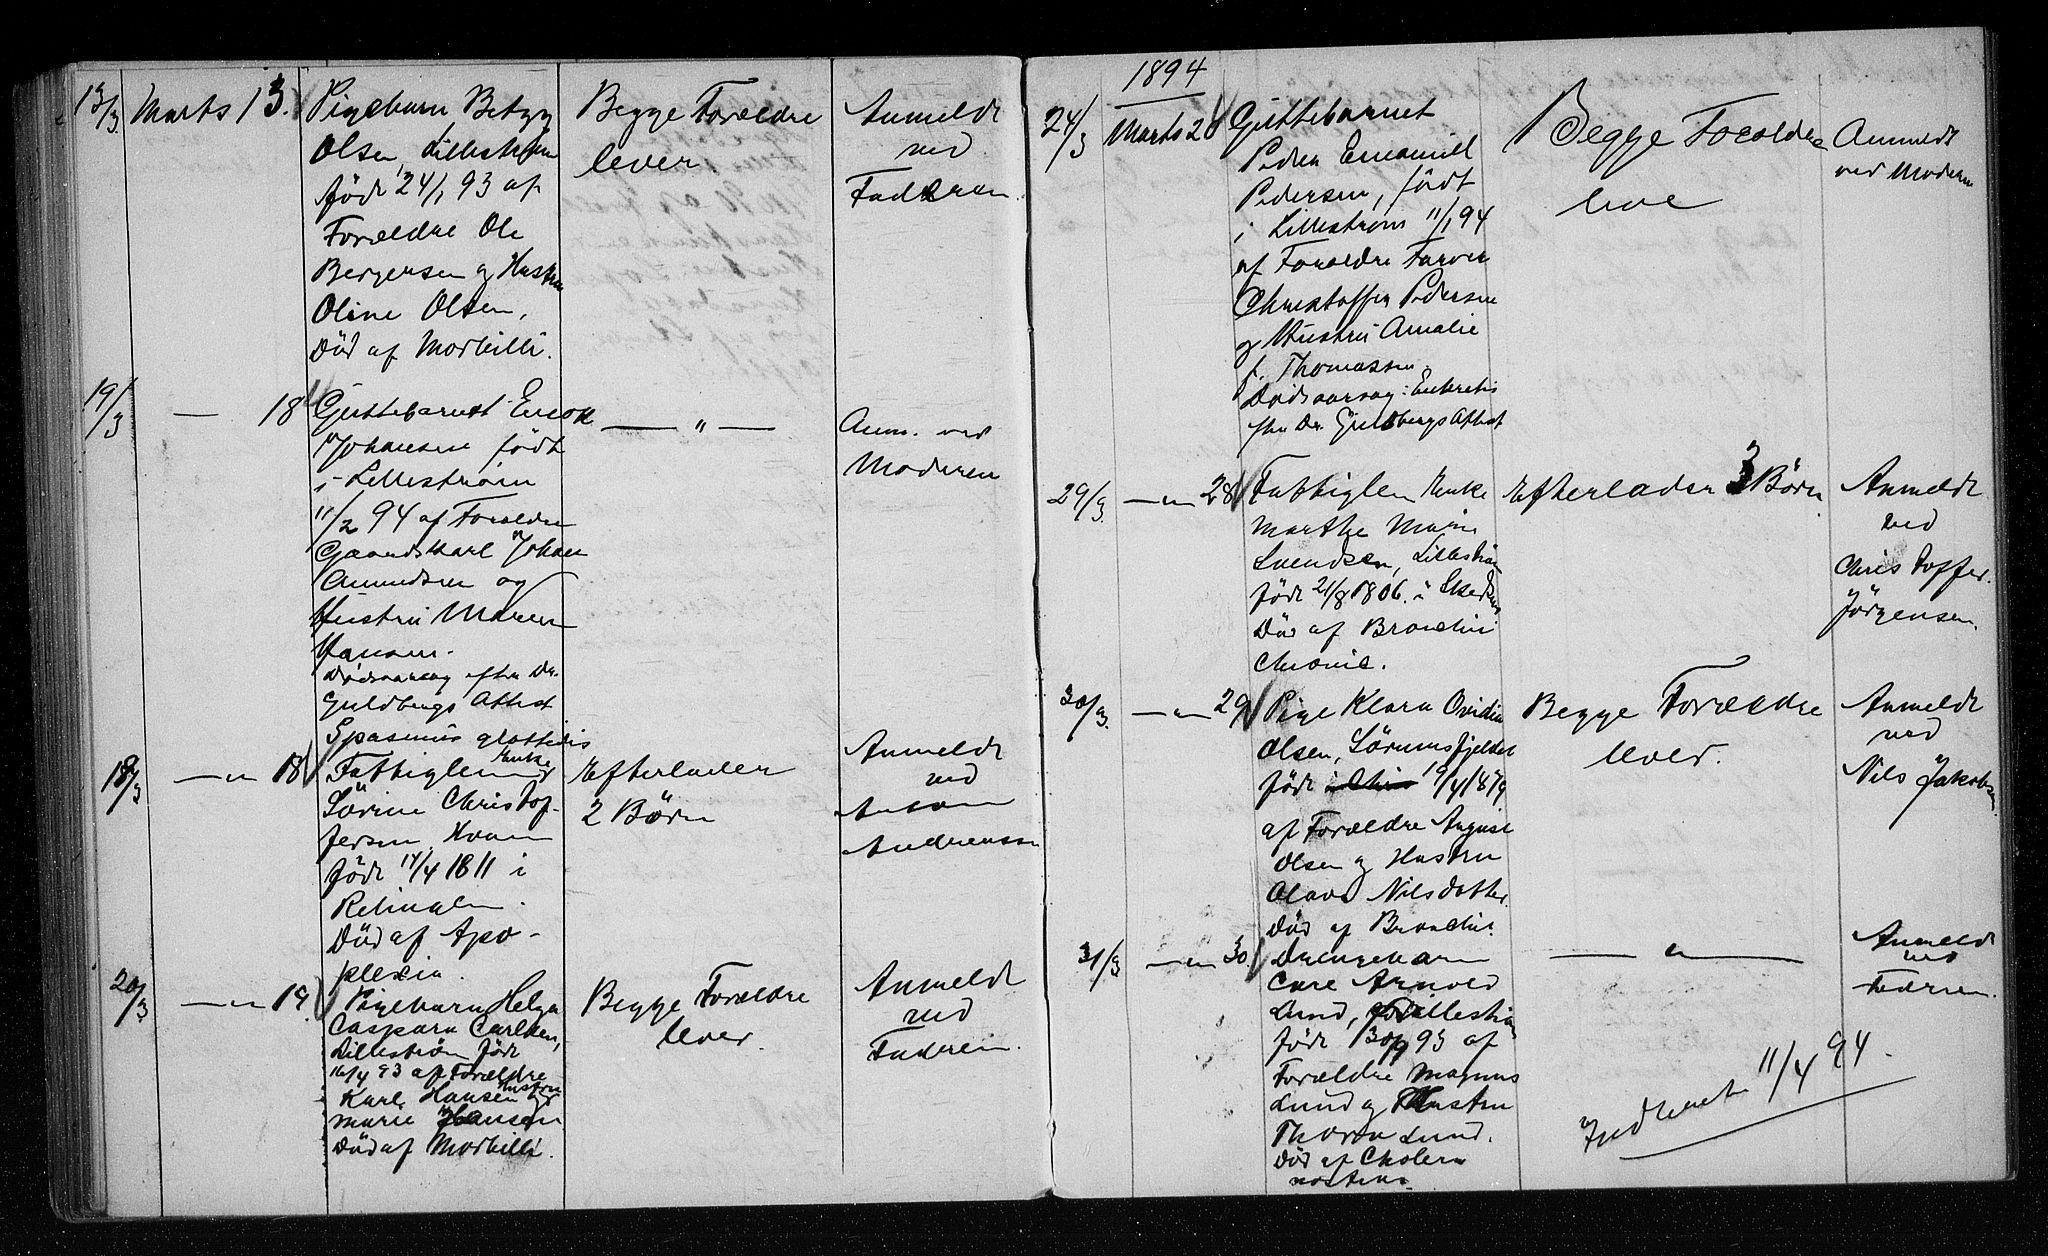 13/3 Marts 13. Pigebarn Betzy
Olsen, Lillestrøm
født 24/1 93 af
Forældre Ole
Bergersen og Hustru
Oline Olsen,
Død af Morbilli.
Begge Forældre
lever
Anmeldt
ved
Faderen.
19/3 — 18 Guttebarnet
Johansen født
i Lillestrøm
11/2 94 af Forældre
Gaardskarl Johan
Amundsen og
Hustru Maren
Hansen.
Dødsaarsag efter Dr.
Guldbergs Attest
Spasmus glottidis
— " —
Anm. ved
Moderen
18/3 — " 18 Fattiglem Enke
Sørine Christof-
fersen, Hvam
født 14/4 1811 i
Rælingen.
Død af Apo-
plexia.
Efterlader
2 Børn
Anmeldt
ved
Anton
Andreassen
20/3 — " 19. Pigebarn Helga
Caspara Carlsen,
Lillestrøm født
16/4 93 af Forældre
Karl Hansen og Hustru
Marie Hansen
Død af Morbilli.
Begge Forældre
lever.
Anmeldt
ved
Faderen.
1894
24/3 Marts 20 Guttebarnet
Peder Emanuel
Pedersen, født
i Lillestrøm 11/1 94
af Forældre Farver
Christoffer Pedersen
og Hustru Amalie
f. Thomassen.
Dødsaarsag: Enteritis
efter Dr. Guldbergs Attest
Begge Forældre
leve
Anmeldt
ved Moderen
29/3. — " 28 Fattiglem Enke
Marthe Marie
Svendsen, Lillestrøm
født 21/8 1806. i Skedsmo
Død af Bronchit
Chronic.
Efterlader 3 Børn
Anmeldt
ved
Christoffer
Jørgensen.
30/3. — " 29 Pige Klara Ovidia
Olsen, Sørumsfjeldet
født 19/4 1879
af Forældre August
Olsen og Hustru
Olava Nilsdatter.
Død af Bronchit.
Begge Forældre
lever.
Anmeldt
ved
Nils Jakobsen
31/3 — " 30. Drengebarn
Carl Arnold
Lund, Lillestrøm
født 30/9 93 af
Forældre Magnus
Lund og Hustru
Thora Lund.
Død af Cholera
nostras.
— " —
Anmeldt
ved
Faderen.
Indsendt 11/4 94.